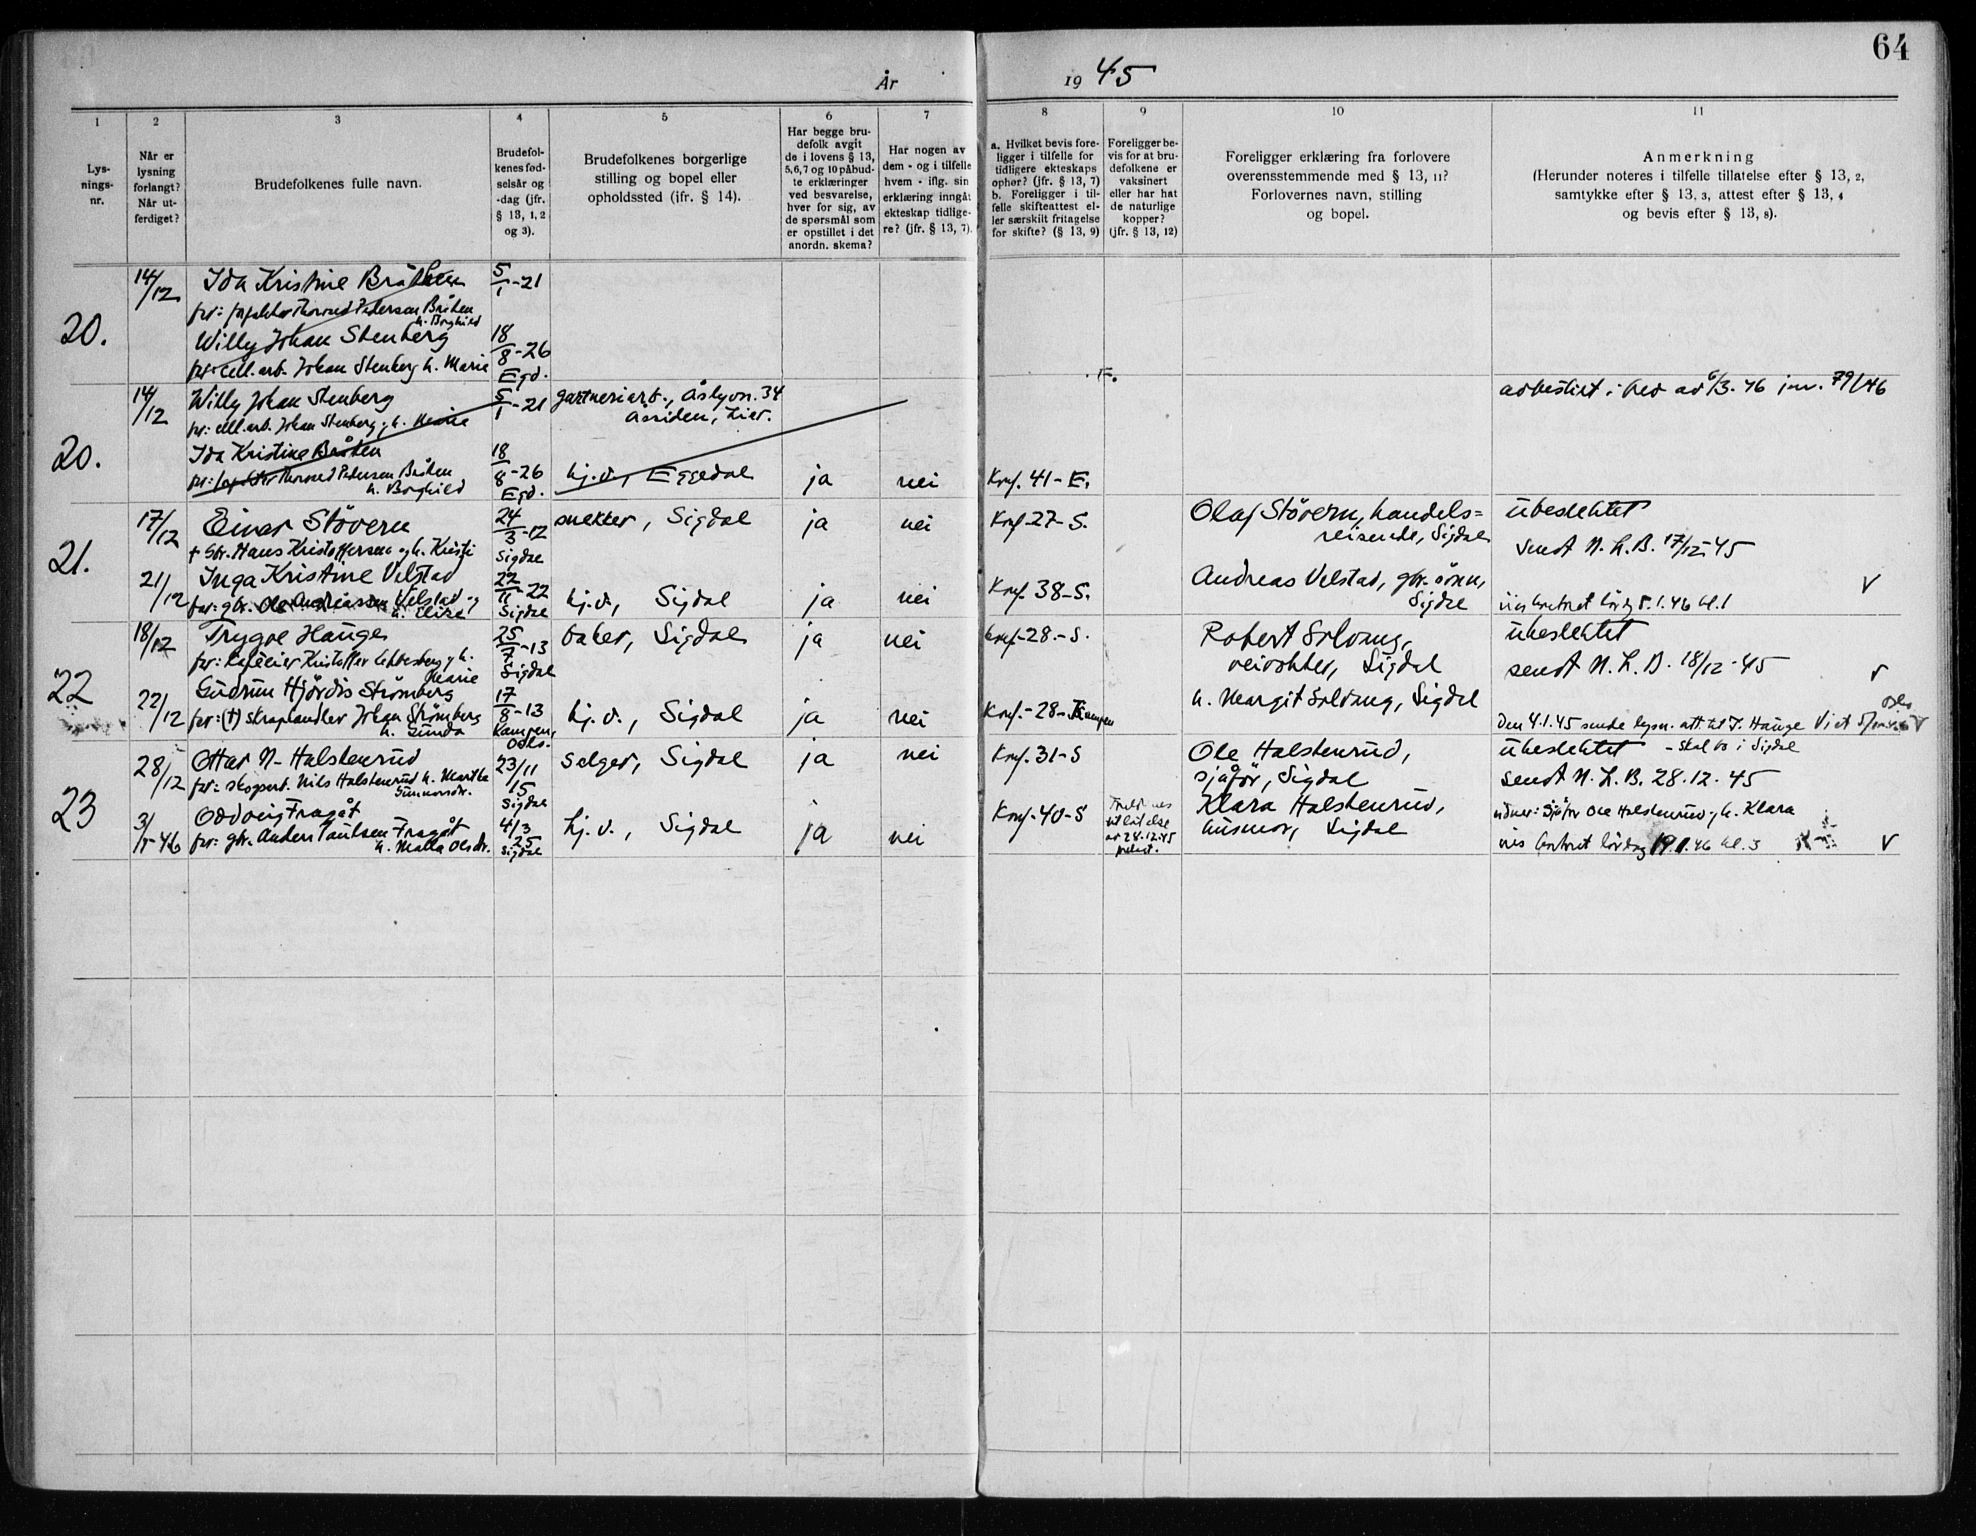 64
År 1945
1
Lys-
nings-
nr.
2
Når er
lysning
forlangt?
Når ut-
ferdiget?
3
Brudefolkenes fulle navn.
4
Brudefol-
kenes fød-
selsår og
-dag (jfr.
§ 13, 1, 2
og 3).
5
Brudefolkenes borgerlige
stilling og bopel eller
opholdssted (ifr. § 14).
6
Har begge bru-
defolk avgit
de i lovens § 13,
5, 6, 7 og 10 påbud-
te erklæringer
ved besvarelse,
hver for sig, av
de spørsmål som
er opstillet i det
anordn. skema?
7
Har nogen av
dem - og i tilfelle
hvem - iflg. sin
erklæring inngåt
ekteskap tidlige-
re? (jfr. § 13, 7).
8
a. Hvilket bevis fore-
ligger i tilfelle for
tidligere ekteskaps
ophør? (jfr. § 13, 7)
b. Foreligger i til-
felle skifteattest el-
ler særskilt fritagelse
for skifte? (§ 13, 9)
9
Foreligger be-
vis for at bru-
defolkene er
vaksinert
eller har hat
de naturlige
kopper?
(jfr. § 13, 12)
10
Foreligger erklæring fra forlovere
overensstemmende med § 13, 11?
Forlovernes navn, stilling
og bopel.
11
Anmerkning
(Herunder noteres i tilfelle tillatelse efter § 13, 2,
samtykke efter § 13, 3, attest efter § 13, 4
og bevis efter § 13, 8).
20.
14/12
Ida Kristine Bråten
5/1-21
far: Thorvald Pedersen Bråten
h. Borghild
Willy Johan Stenberg
18/8-26
Egd.
far: cell.arb. Johan Stenberg h. Marie
20.
14/12
Willy Johan Stenberg
5/1-21
gartneriarb., Åslyvn. 34
Åssiden, Lier.
F.
6/3-46 jnr. 79/46
far: cell.arb. Johan Stenberg, h. Marie
Ida Kristine Bråten
18/8-26
Egd.
hj.d., Eggedal
ja
nei
Konf. 41-E.
far: Thorvald Pedersen Bråten
h. Borghild
21.
17/12
Einar Stövern
24/3-12
Sigdal
snekker, Sigdal
ja
nei
Konf-27-S.
Olaf Stövern, handels=
reisende, Sigdal
ubeslektet
sendt N.L.B. 17/12-45
† gbr. Hans Kristoffersen og h. Kristi
21/12
Inga Kristine Velstad
22/11-22
Sigdal
hj.d., Sigdal
ja
nei
Konf 38-S.
Andreas Velstad, gbr. sønn,
Sigdal
lördg 5.1.46 kl. 1
V
far: gbr. Ole Andreassen Velstad og
h. Elise
22
18/12
Trygve Hauge
25/7-13
Sigdal
baker, Sigdal
ja
nei
konf-28-S.
Robert Solvang,
veivokter, Sigdal
ubeslektet
sendt N.L.B. 18/12-45
far: Kristoffer h.
Marie
22/12
Gudrun Hjördis Strömberg
17/8-13
Kampen,
Oslo.
hj.d., Sigdal
ja
nei
Konf.-28-Kampen
h. Margit Solvang, Sigdal
Den 4.1.45 sendt lysn.att. til T. Hauge
Oslo
far: (†) skraphandler Johan Strömberg
h. Gunda
23
28/12
Ottar N. Halstenrud
23/11
15
Sigdal
selger, Sigdal
ja
nei
Konf. 31-S
Ole Halstenrud,
sjåför, Sigdal
ubeslektet - skal bo i Sigdal
sendt N.L.B. 28.12.45
far: skogsarb. Nils Halstenrud h. Marthe
Gunnarsdr.
3/1-46
Oddveig Fragåt
4/3
25
Sigdal
hj.d., Sigdal
ja
nei
Konf-40-S
28.12.45
Klara Halstenrud,
husmor, Sigdal
Sjåfør Ole Halstenrud og h. Klara
lördag 19.1.46 kl. 3
V
far: gbr. Anders Paulsen Fragåt
h. Malla Olsdr.